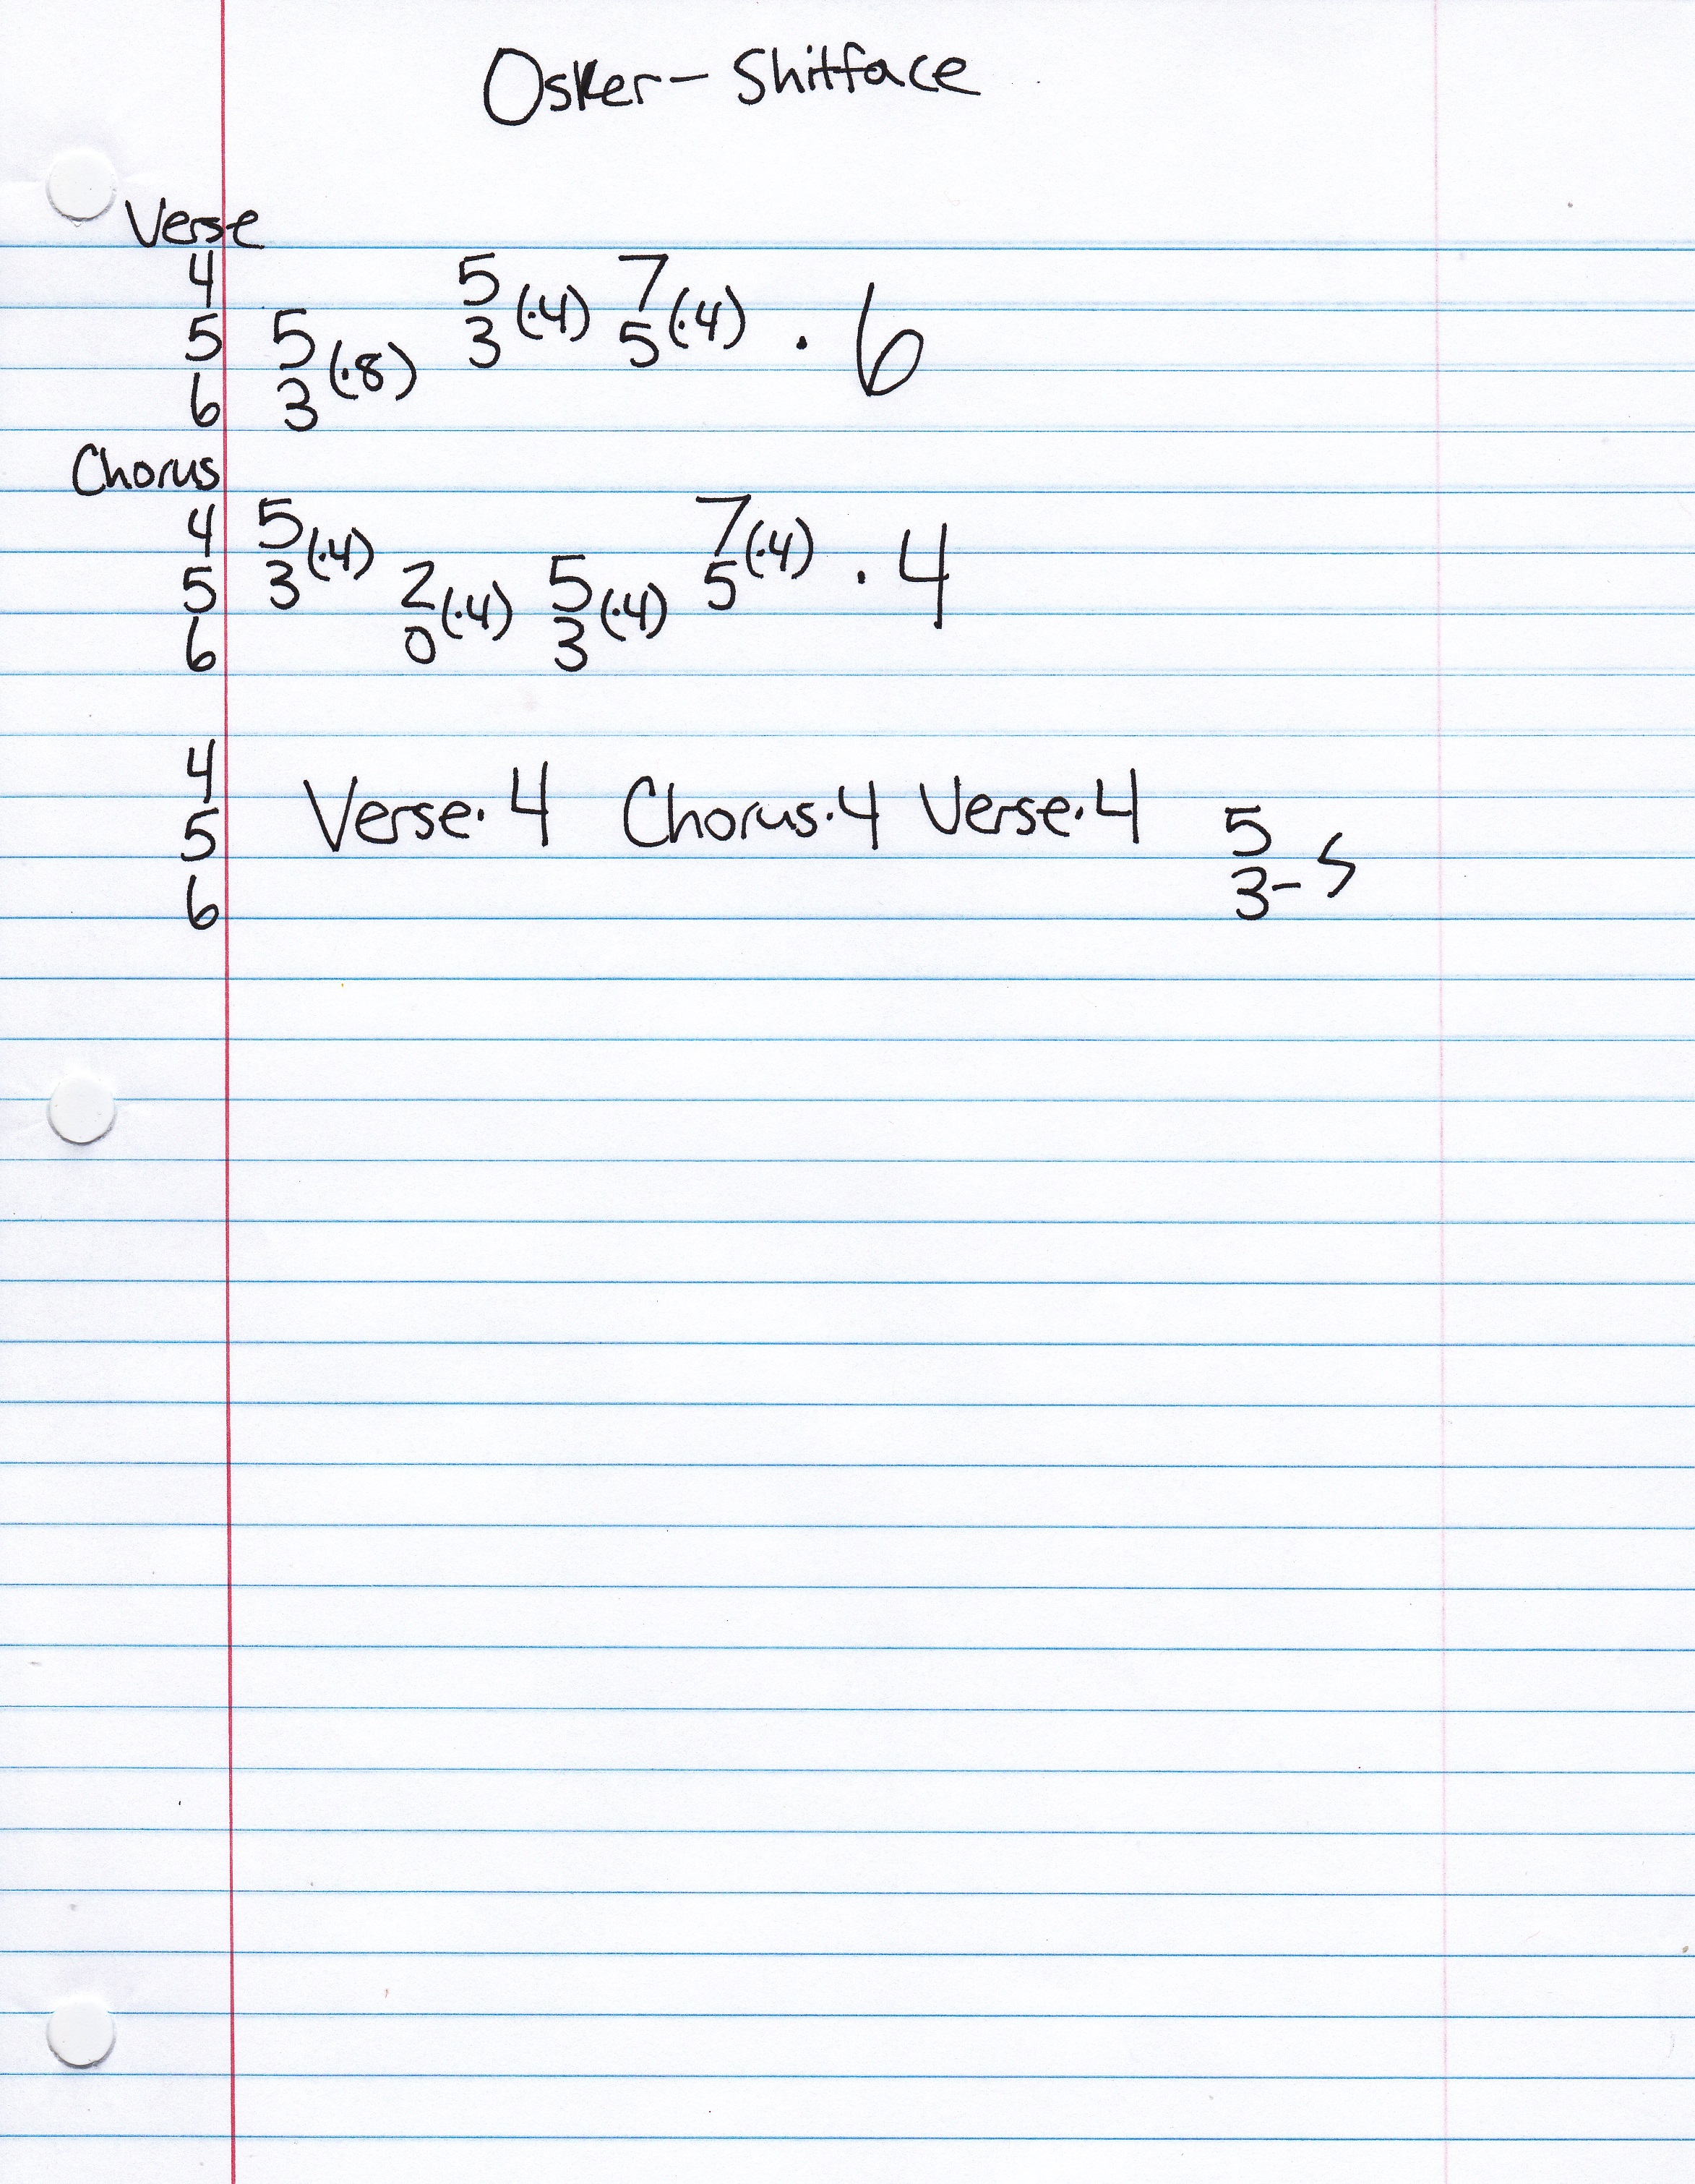 Osker - Shitface
Verse
4 5 7
5 5 (·8) 3 (·4) 5 (·4) · 6
6 3
Chorus
4 5 (·4) 7 (·4) · 4
5 3 2 (·4) 5 (·4) 5
6 0 3
4
5 Verse · 4 Chorus · 4 Verse · 4 5
6 3-